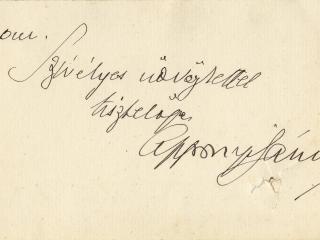 om.
Szívélyes üdvözlettel
tisztelője
Apponyi Sándor